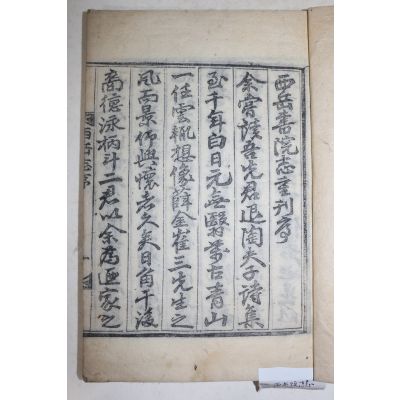 西岳書院志重刊序
余嘗讀吾先君退陶夫子詩集
至千年白日元無翳萬古青山
一任雲輒想像薛金崔三先生之
風而景仰興懷者久矣日角干後
裔德泳柄斗二君以余爲匪家之
西岳志序